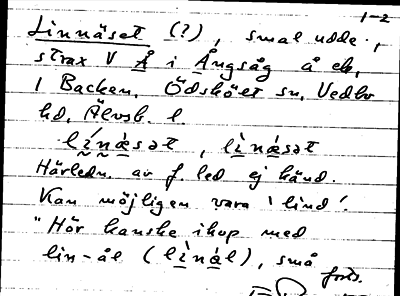 1-2
Linnäset (?), smal udde,
strax V Å i Ångsåg å ek.
1 Backen, Ödsköet sn, Vedbo
hd, Älvsb. l.
línä̀sət, lìnä̀sət
Härledn. av f. led ej känd.
Kan möjligen vara 'lind'.
"Hör kanske ihop med
lin-ål (lìnål), små